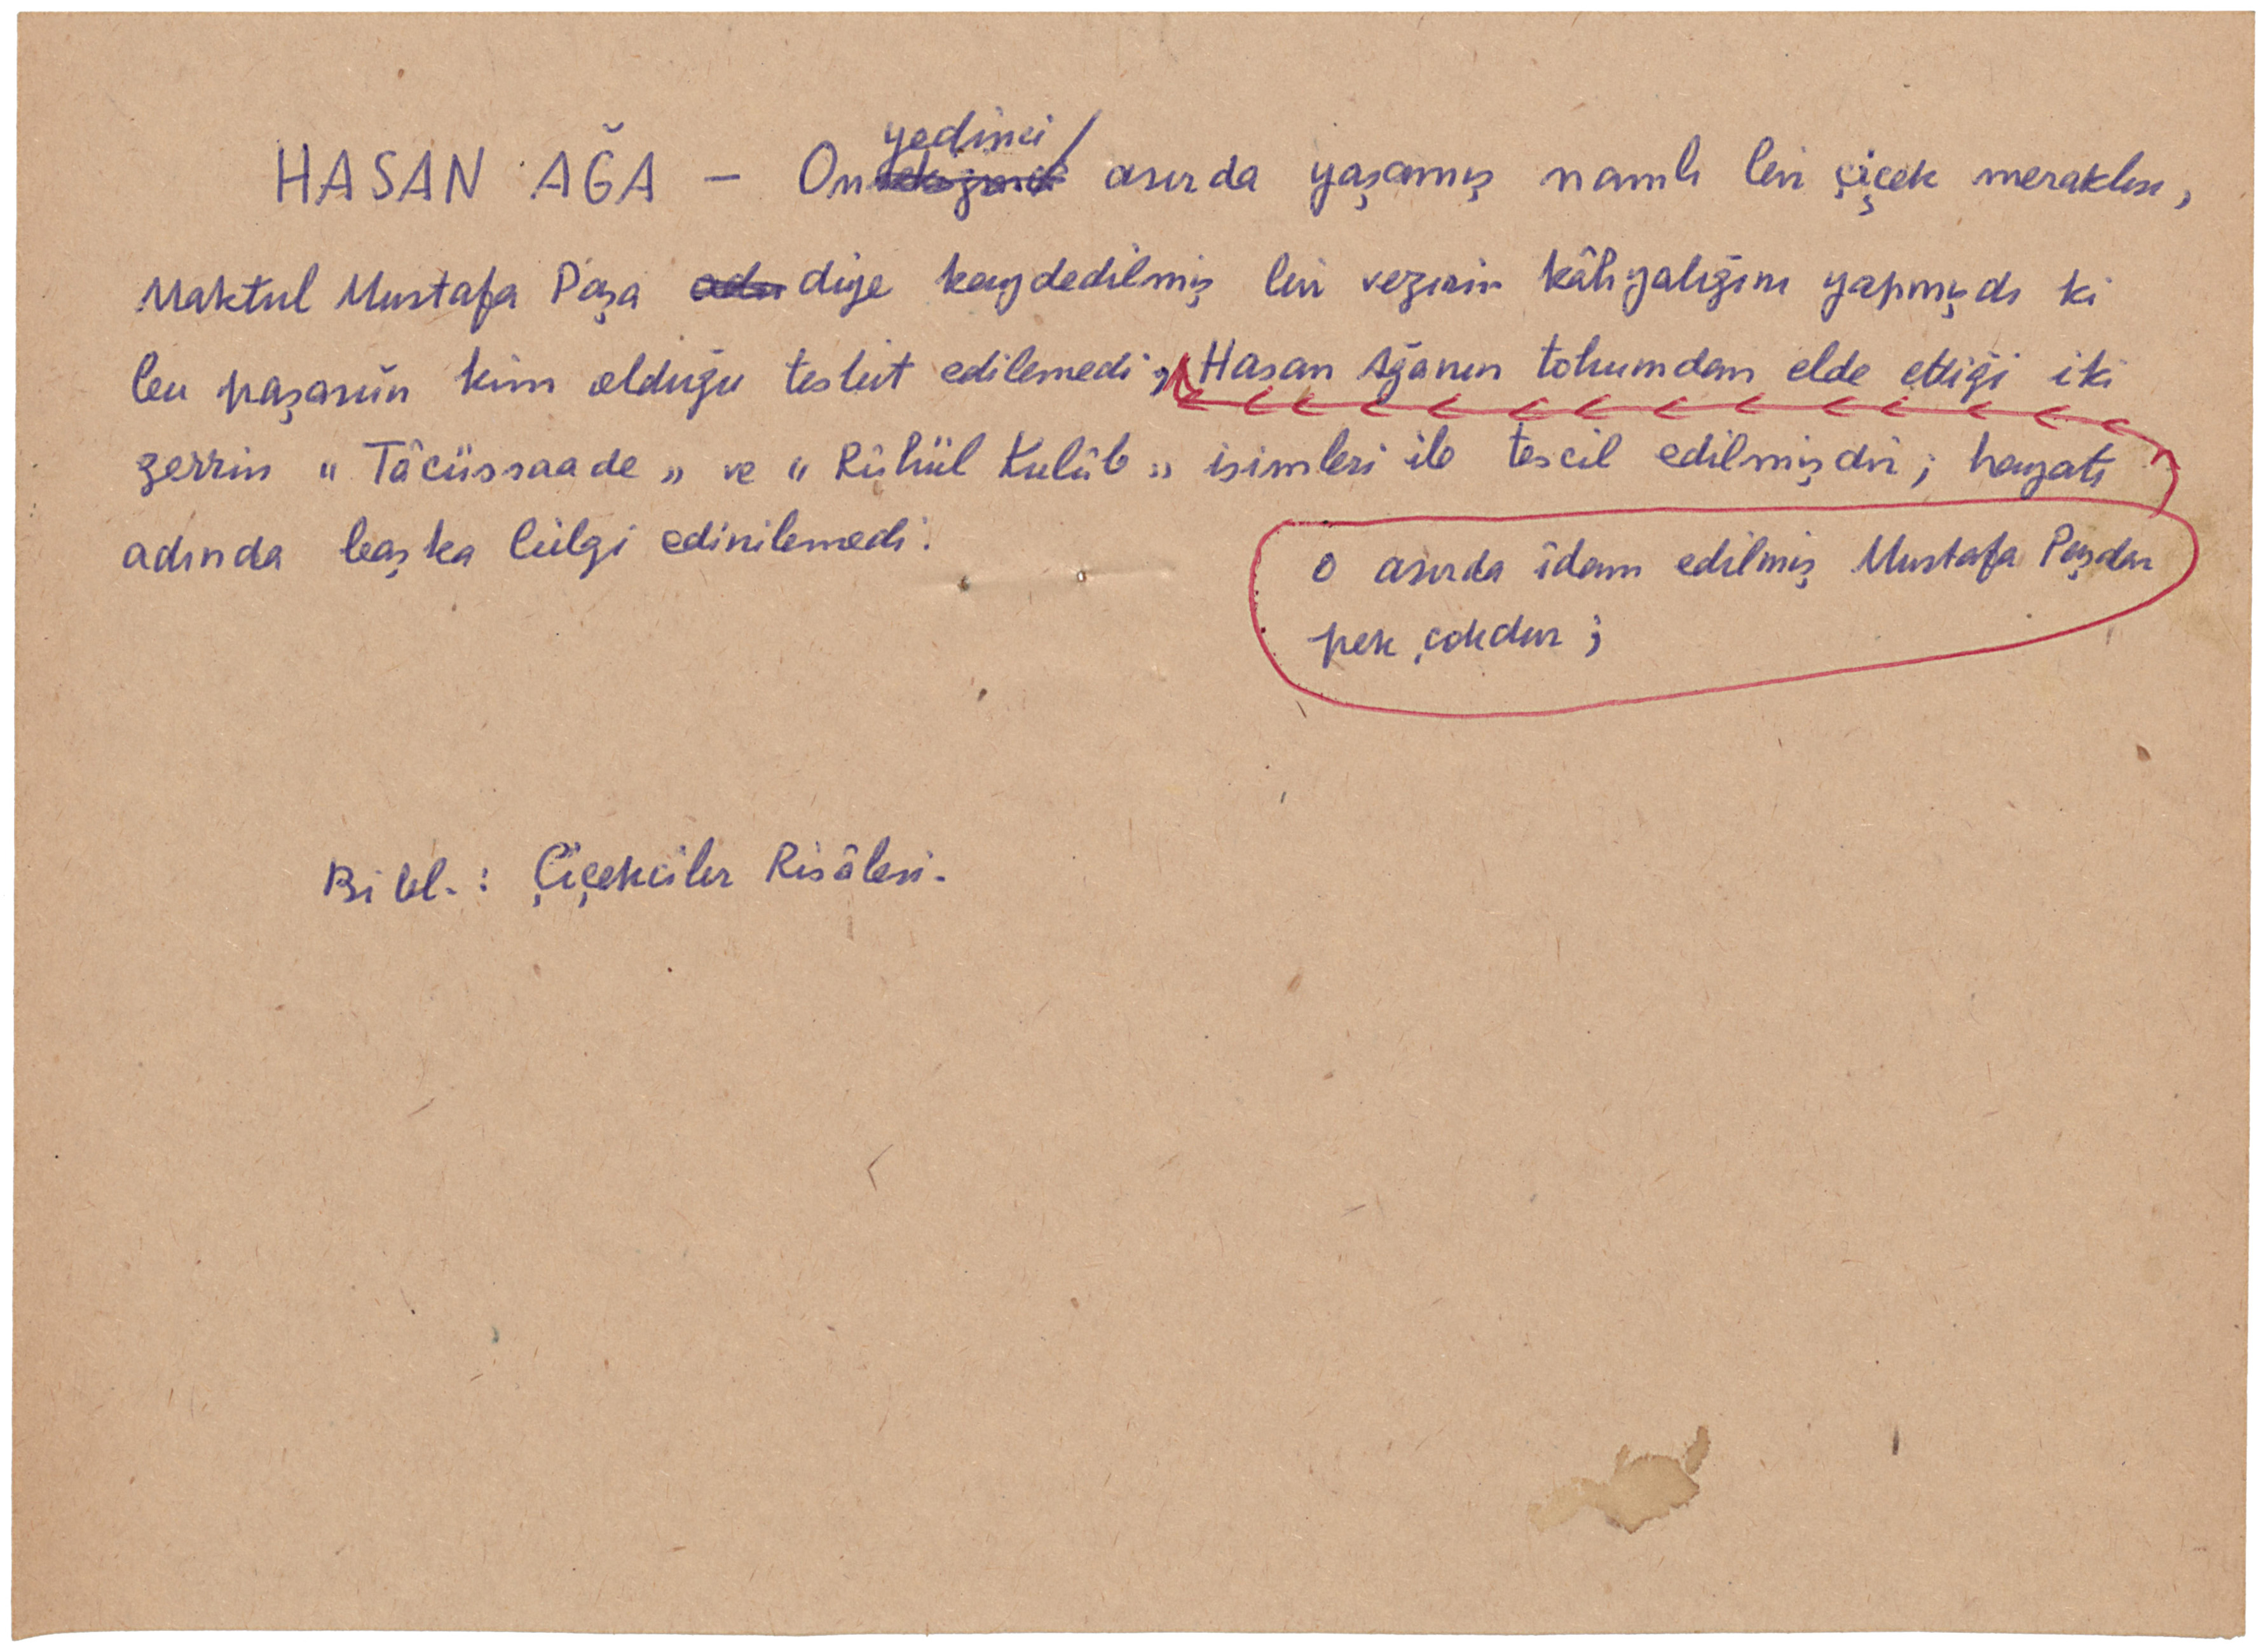 HASAN AĞA – On yedinci asırda yaşamış namlı bir çiçek meraklısı,
Maktul Mustafa Paşa diye kaydedilmiş bir vezirin kâhyalığını yapmışdı ki
bu paşanın kim olduğu tesbit edilemedi, Hasan Ağanın tohumdan elde ettiği iki
zerrin "Tâcüssaade" ve "Rûhül Kulûb" isimleri ile tescil edilmişdir; hayatı
adında başka bilgi edinilemedi.
o asırda îdam edilmiş Mustafa Paşalar
pek çokdur;
Bibl.: Çiçekciler Risâlesi.